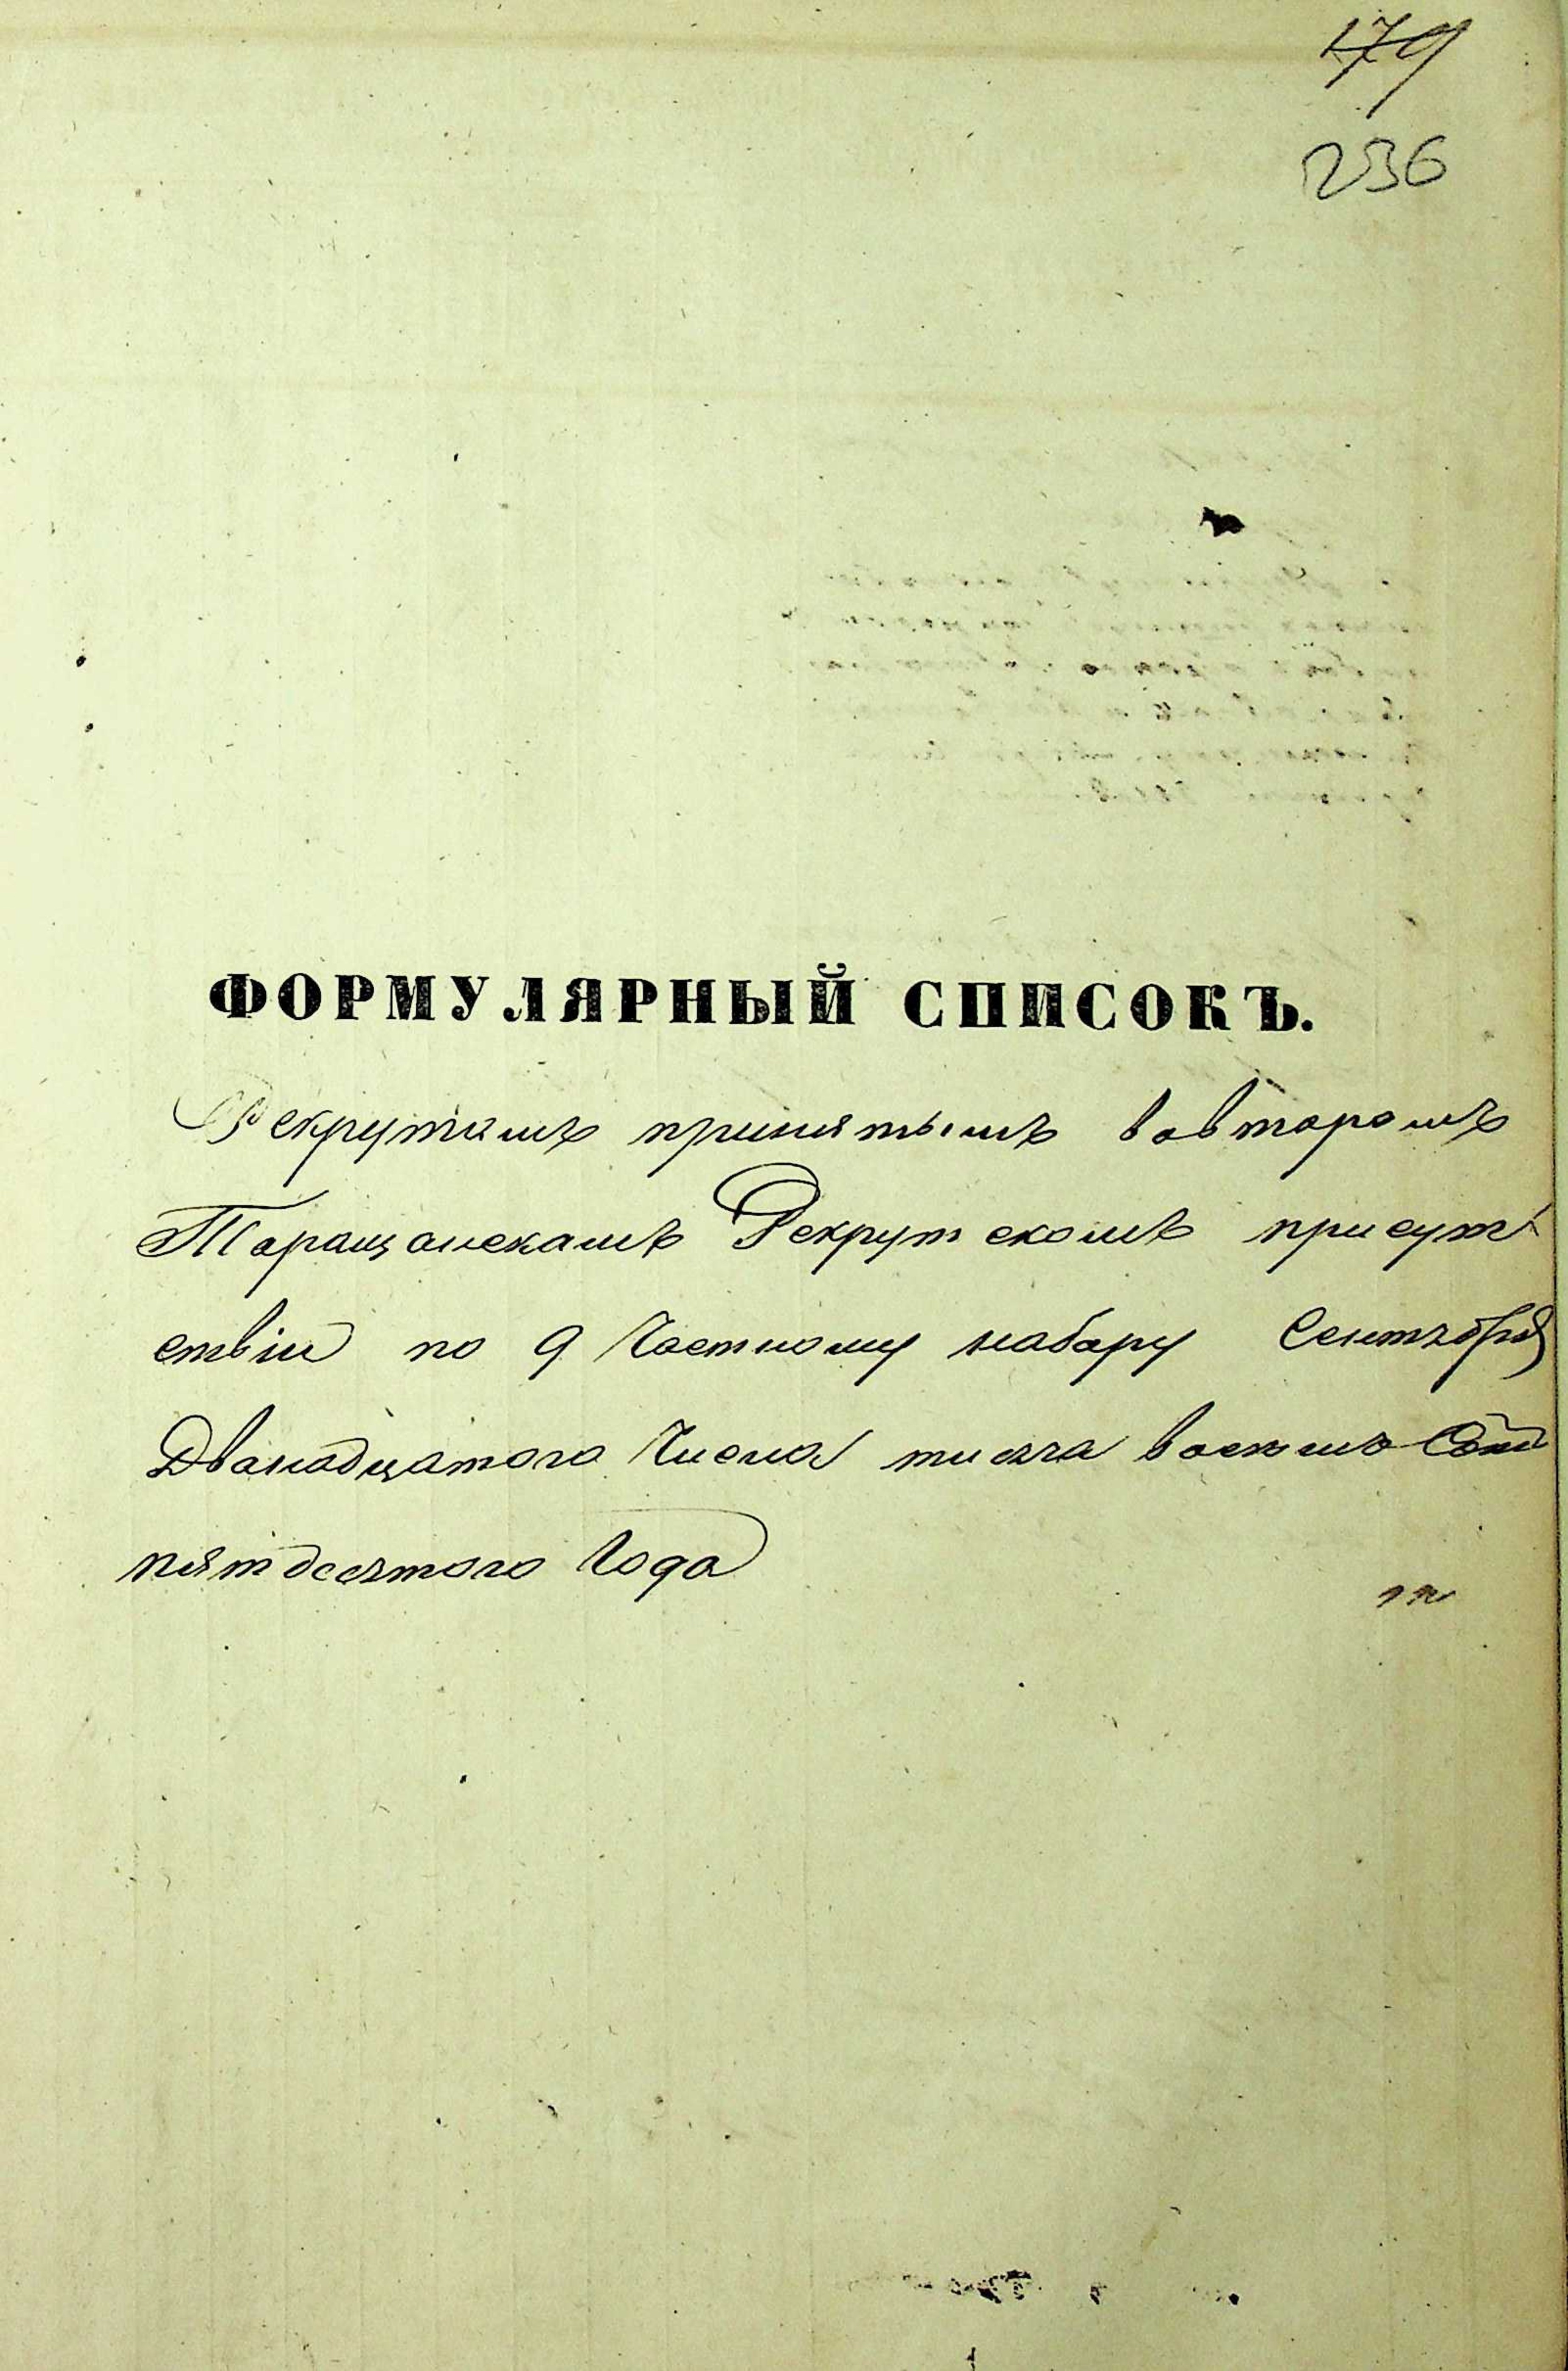 179
236
ФОРМУЛЯРНЫЙ СПИСОКЪ.
Рекрутамъ принятымъ вовторомъ
Таращанскамъ Рекрутскомъ присут
ствіи по 9 Частному набору Сентября
Дванадцатого Числа тисяча восемъ Сотъ
пятдесятого Года